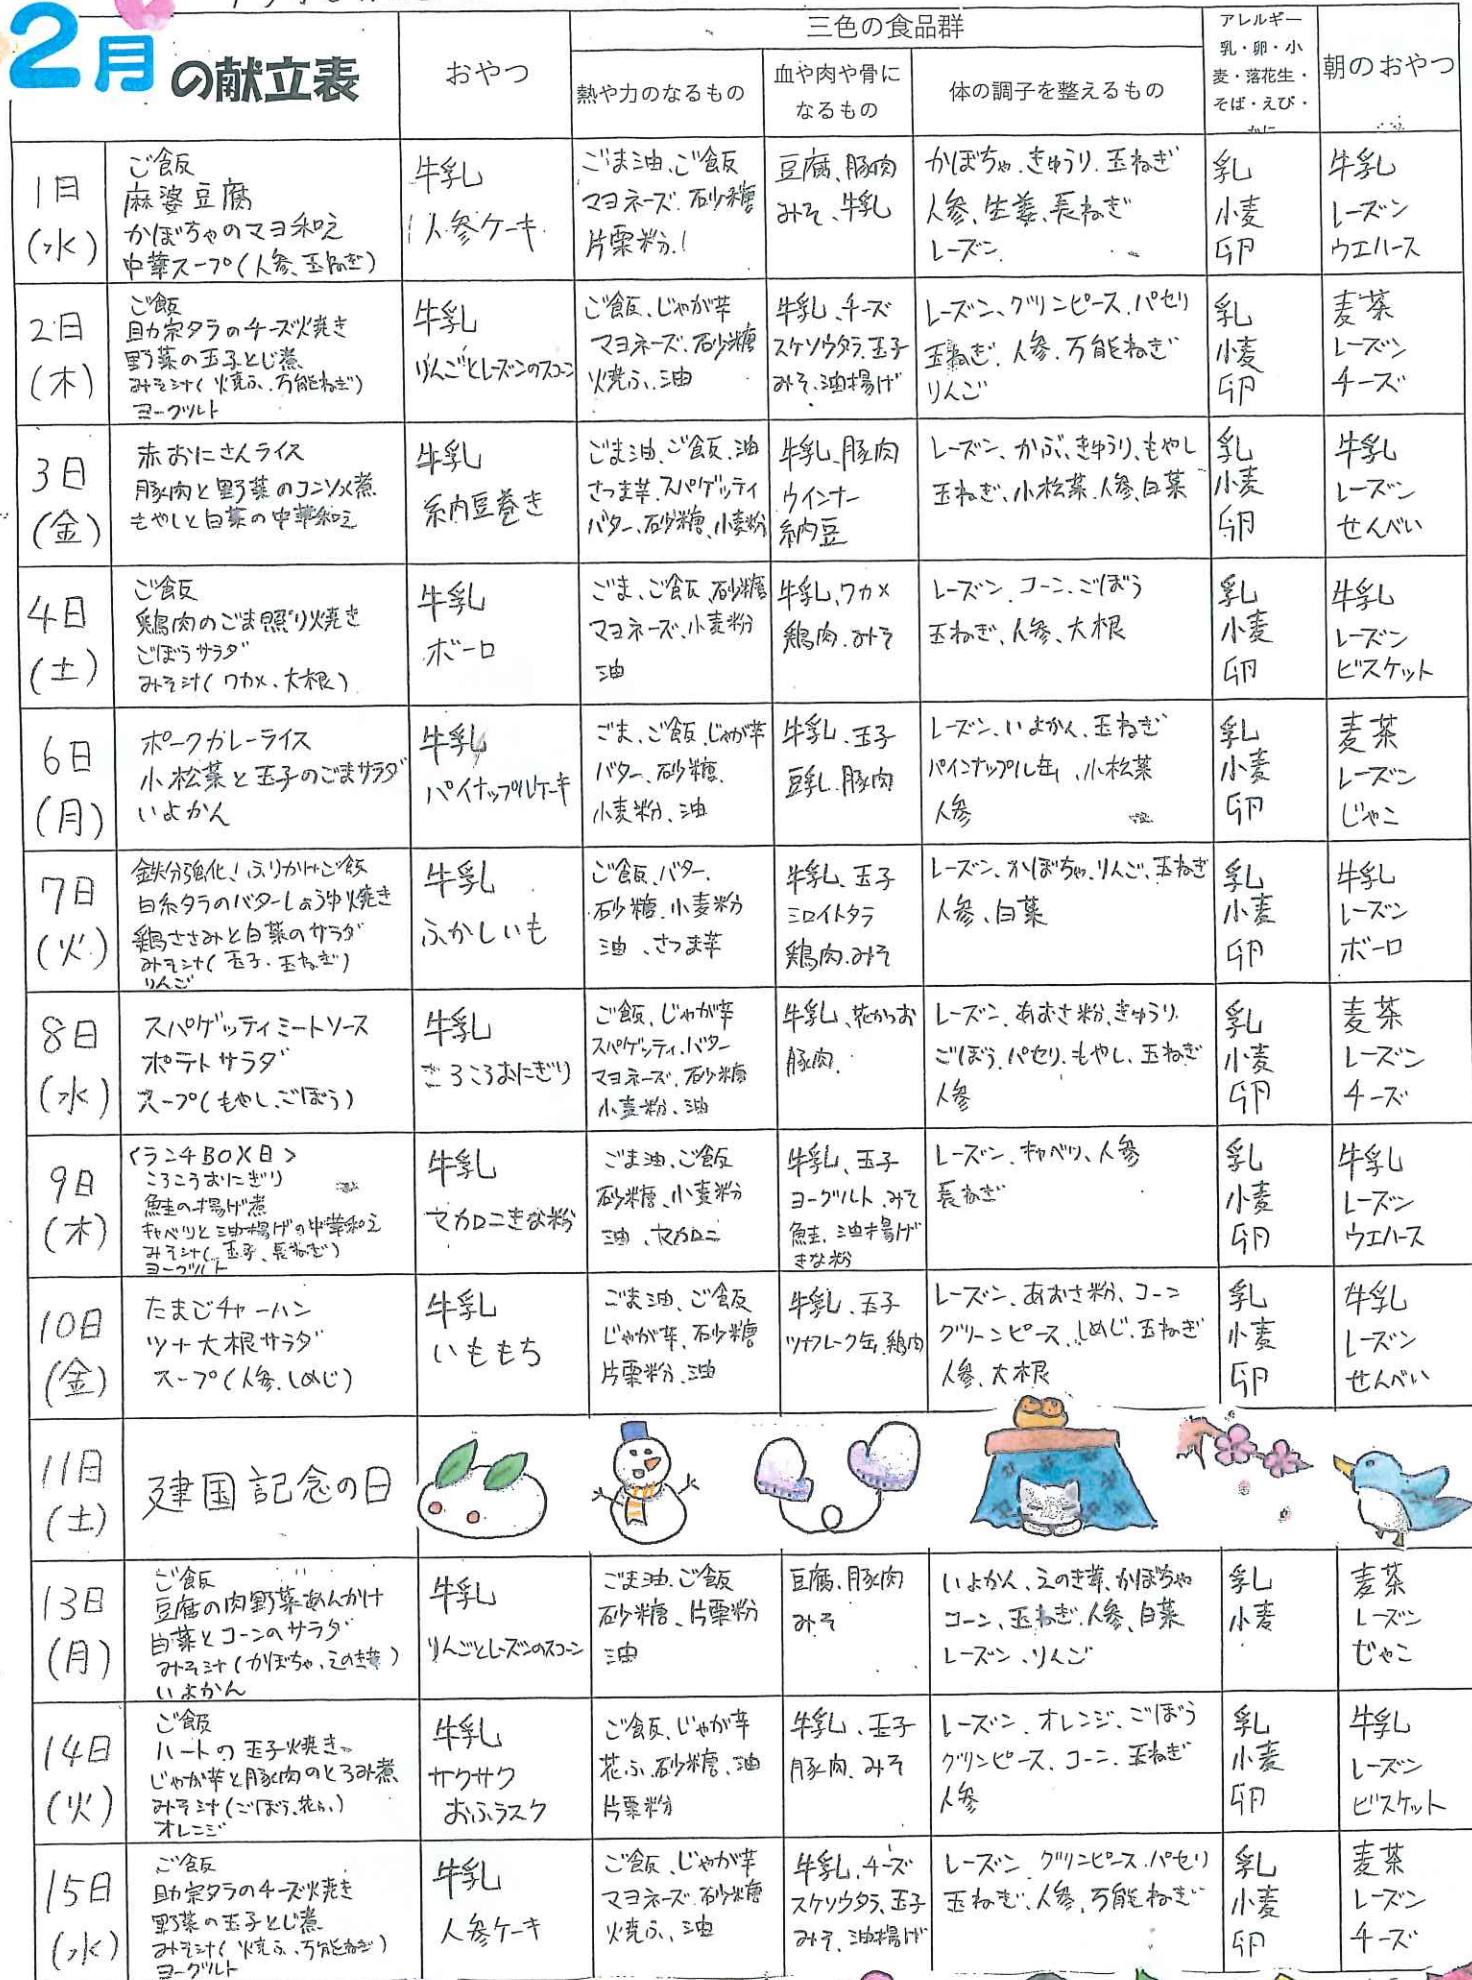 2月の献立表
おやつ
三色の食品群
熱や力のなるもの
血や肉や骨に
なるもの
体の調子を整えるもの
アレルギー
乳・卵・小
麦・落花生・
そば・えび・
かに
朝のおやつ
1日
(水)
ご飯
麻婆豆腐
かぼちゃのマヨ和え
中華スープ(人参、玉ねぎ)
牛乳
人参ケーキ
ごま油、ご飯
マヨネーズ、砂糖
片栗粉
豆腐、豚肉
みそ、牛乳
かぼちゃ、きゅうり、玉ねぎ
人参、生姜、長ねぎ
レーズン
乳
小麦
卵
牛乳
レーズン
ウエハース
2日
(木)
ご飯
助宗タラのチーズ焼き
野菜の玉子とじ煮
みそ汁(焼ふ、万能ねぎ)
ヨーグルト
牛乳
りんごとレーズンのスコーン
ご飯、じゃが芋
マヨネーズ、砂糖
焼ふ、油
牛乳、チーズ
スケソウタラ、玉子
みそ、油揚げ
レーズン、グリンピース、パセリ
玉ねぎ、人参、万能ねぎ
りんご
乳
小麦
卵
麦茶
レーズン
チーズ
3日
(金)
赤おにさんライス
豚肉と野菜のコンソメ煮
もやしと白菜の中華和え
牛乳
納豆巻き
ごま油、ご飯、油
さつま芋、スパゲッティ
バター、砂糖、小麦粉
牛乳、豚肉
ウインナー
納豆
レーズン、かぶ、きゅうり、もやし
玉ねぎ、小松菜、人参、白菜
乳
小麦
卵
牛乳
レーズン
せんべい
4日
(土)
ご飯
鶏肉のごま照り焼き
ごぼうサラダ
みそ汁(ワカメ、大根)
牛乳
ボーロ
ごま、ご飯、砂糖
マヨネーズ、小麦粉
油
牛乳、ワカメ
鶏肉、みそ
レーズン、コーン、ごぼう
玉ねぎ、人参、大根
乳
小麦
卵
牛乳
レーズン
ビスケット
6日
(月)
ポークカレーライス
小松菜と玉子のごまサラダ
いよかん
牛乳
パイナップルケーキ
ごま、ご飯、じゃが芋
バター、砂糖、
小麦粉、油
牛乳、玉子
豆乳、豚肉
レーズン、いよかん、玉ねぎ
パインナップル缶、小松菜
人参
乳
小麦
卵
麦茶
レーズン
じゃこ
7日
(火)
鉄分強化!ふりかけご飯
白糸タラのバターしょうゆ焼き
鶏ささみと白菜のサラダ
みそ汁(玉子、玉ねぎ)
りんご
牛乳
ふかしいも
ご飯、バター、
砂糖、小麦粉
油、さつま芋
牛乳、玉子
シロイトタラ
鶏肉、みそ
レーズン、かぼちゃ、りんご、玉ねぎ
人参、白菜
乳
小麦
卵
牛乳
レーズン
ボーロ
8日
(水)
スパゲッティミートソース
ポテトサラダ
スープ(もやし、ごぼう)
牛乳
ころころおにぎり
ご飯、じゃが芋
スパゲッティ、バター
マヨネーズ、砂糖
小麦粉、油
牛乳、花かつお
豚肉
レーズン、あおさ粉、きゅうり、
ごぼう、パセリ、もやし、玉ねぎ
人参
乳
小麦
卵
麦茶
レーズン
チーズ
9日
(木)
<ランチBOX日>
ころころおにぎり
鮭の揚げ煮
キャベツと油揚げの中華和え
みそ汁(玉子、長ねぎ)
ヨーグルト
牛乳
マカロニきな粉
ごま油、ご飯
砂糖、小麦粉
油、マカロニ
牛乳、玉子
ヨーグルト、みそ
鮭、油揚げ
きな粉
レーズン、キャベツ、人参
長ねぎ
乳
小麦
卵
牛乳
レーズン
ウエハース
10日
(金)
たまごチャーハン
ツナ大根サラダ
スープ(人参、しめじ)
牛乳
いももち
ごま油、ご飯
じゃが芋、砂糖
片栗粉、油
牛乳、玉子
ツナフレーク缶、鶏肉
レーズン、あおさ粉、コーン
グリーンピース、しめじ、玉ねぎ
人参、大根
乳
小麦
卵
牛乳
レーズン
せんべい
11日
(土)
建国記念の日
13日
(月)
ご飯
豆腐の肉野菜あんかけ
白菜とコーンのサラダ
みそ汁(かぼちゃ、えのき茸)
いよかん
牛乳
りんごとレーズンのスコーン
ごま油、ご飯
砂糖、片栗粉
油
豆腐、豚肉
みそ
いよかん、えのき茸、かぼちゃ
コーン、玉ねぎ、人参、白菜
レーズン、りんご
乳
小麦
麦茶
レーズン
じゃこ
14日
(火)
ご飯
ハートの玉子焼き
じゃが芋と豚肉のとろみ煮
みそ汁(ごぼう、花ふ)
オレンジ
牛乳
サクサク
おふラスク
ご飯、じゃが芋
花ふ、砂糖、油
片栗粉
牛乳、玉子
豚肉、みそ
レーズン、オレンジ、ごぼう
グリンピース、コーン、玉ねぎ
人参
乳
小麦
卵
牛乳
レーズン
ビスケット
15日
(水)
ご飯
助宗タラのチーズ焼き
野菜の玉子とじ煮
みそ汁(焼ふ、万能ねぎ)
ヨーグルト
牛乳
人参ケーキ
ご飯、じゃが芋
マヨネーズ、砂糖
焼ふ、油
牛乳、チーズ
スケソウタラ、玉子
みそ、油揚げ
レーズン、グリンピース、パセリ
玉ねぎ、人参、万能ねぎ
乳
小麦
卵
麦茶
レーズン
チーズ